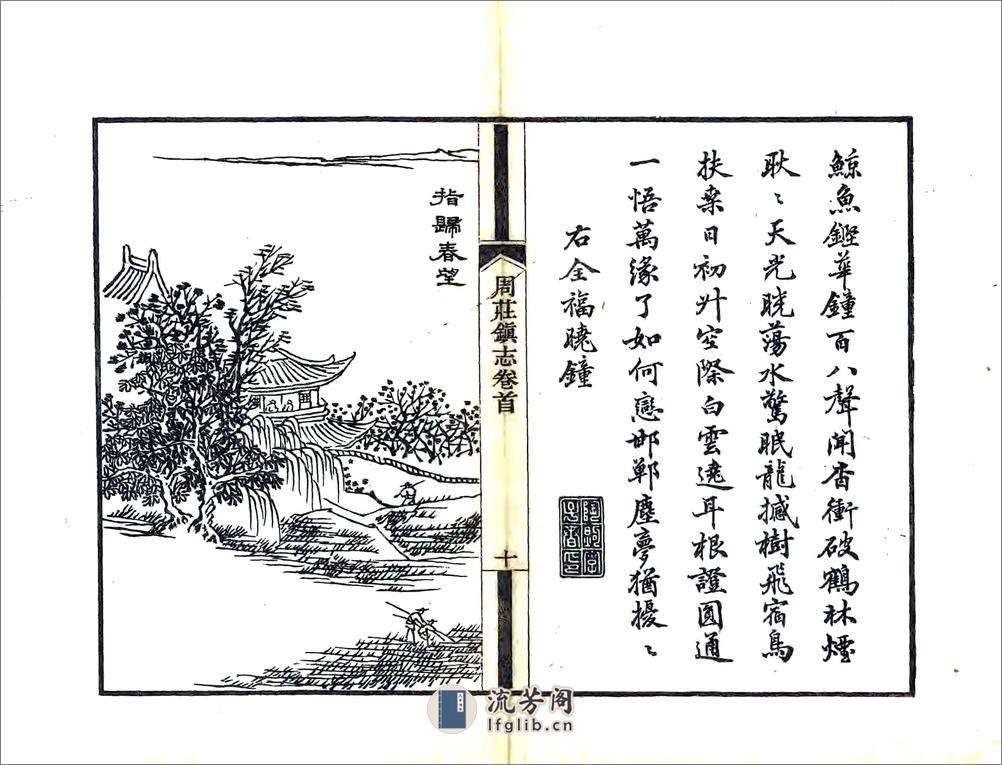 鯨魚鏗華鐘百八聲聞杳衝破鶴林煙
耿〻天光晄蕩水驚眠龍撼樹飛宿鳥
扶桒日初升空際白雲遶耳根證圓通
一悟萬緣了如何戀邯鄲塵夢猶擾〻
右全福曉鐘
周莊鎮志卷首
十
指歸春望
流芳阁
lfglib.cn